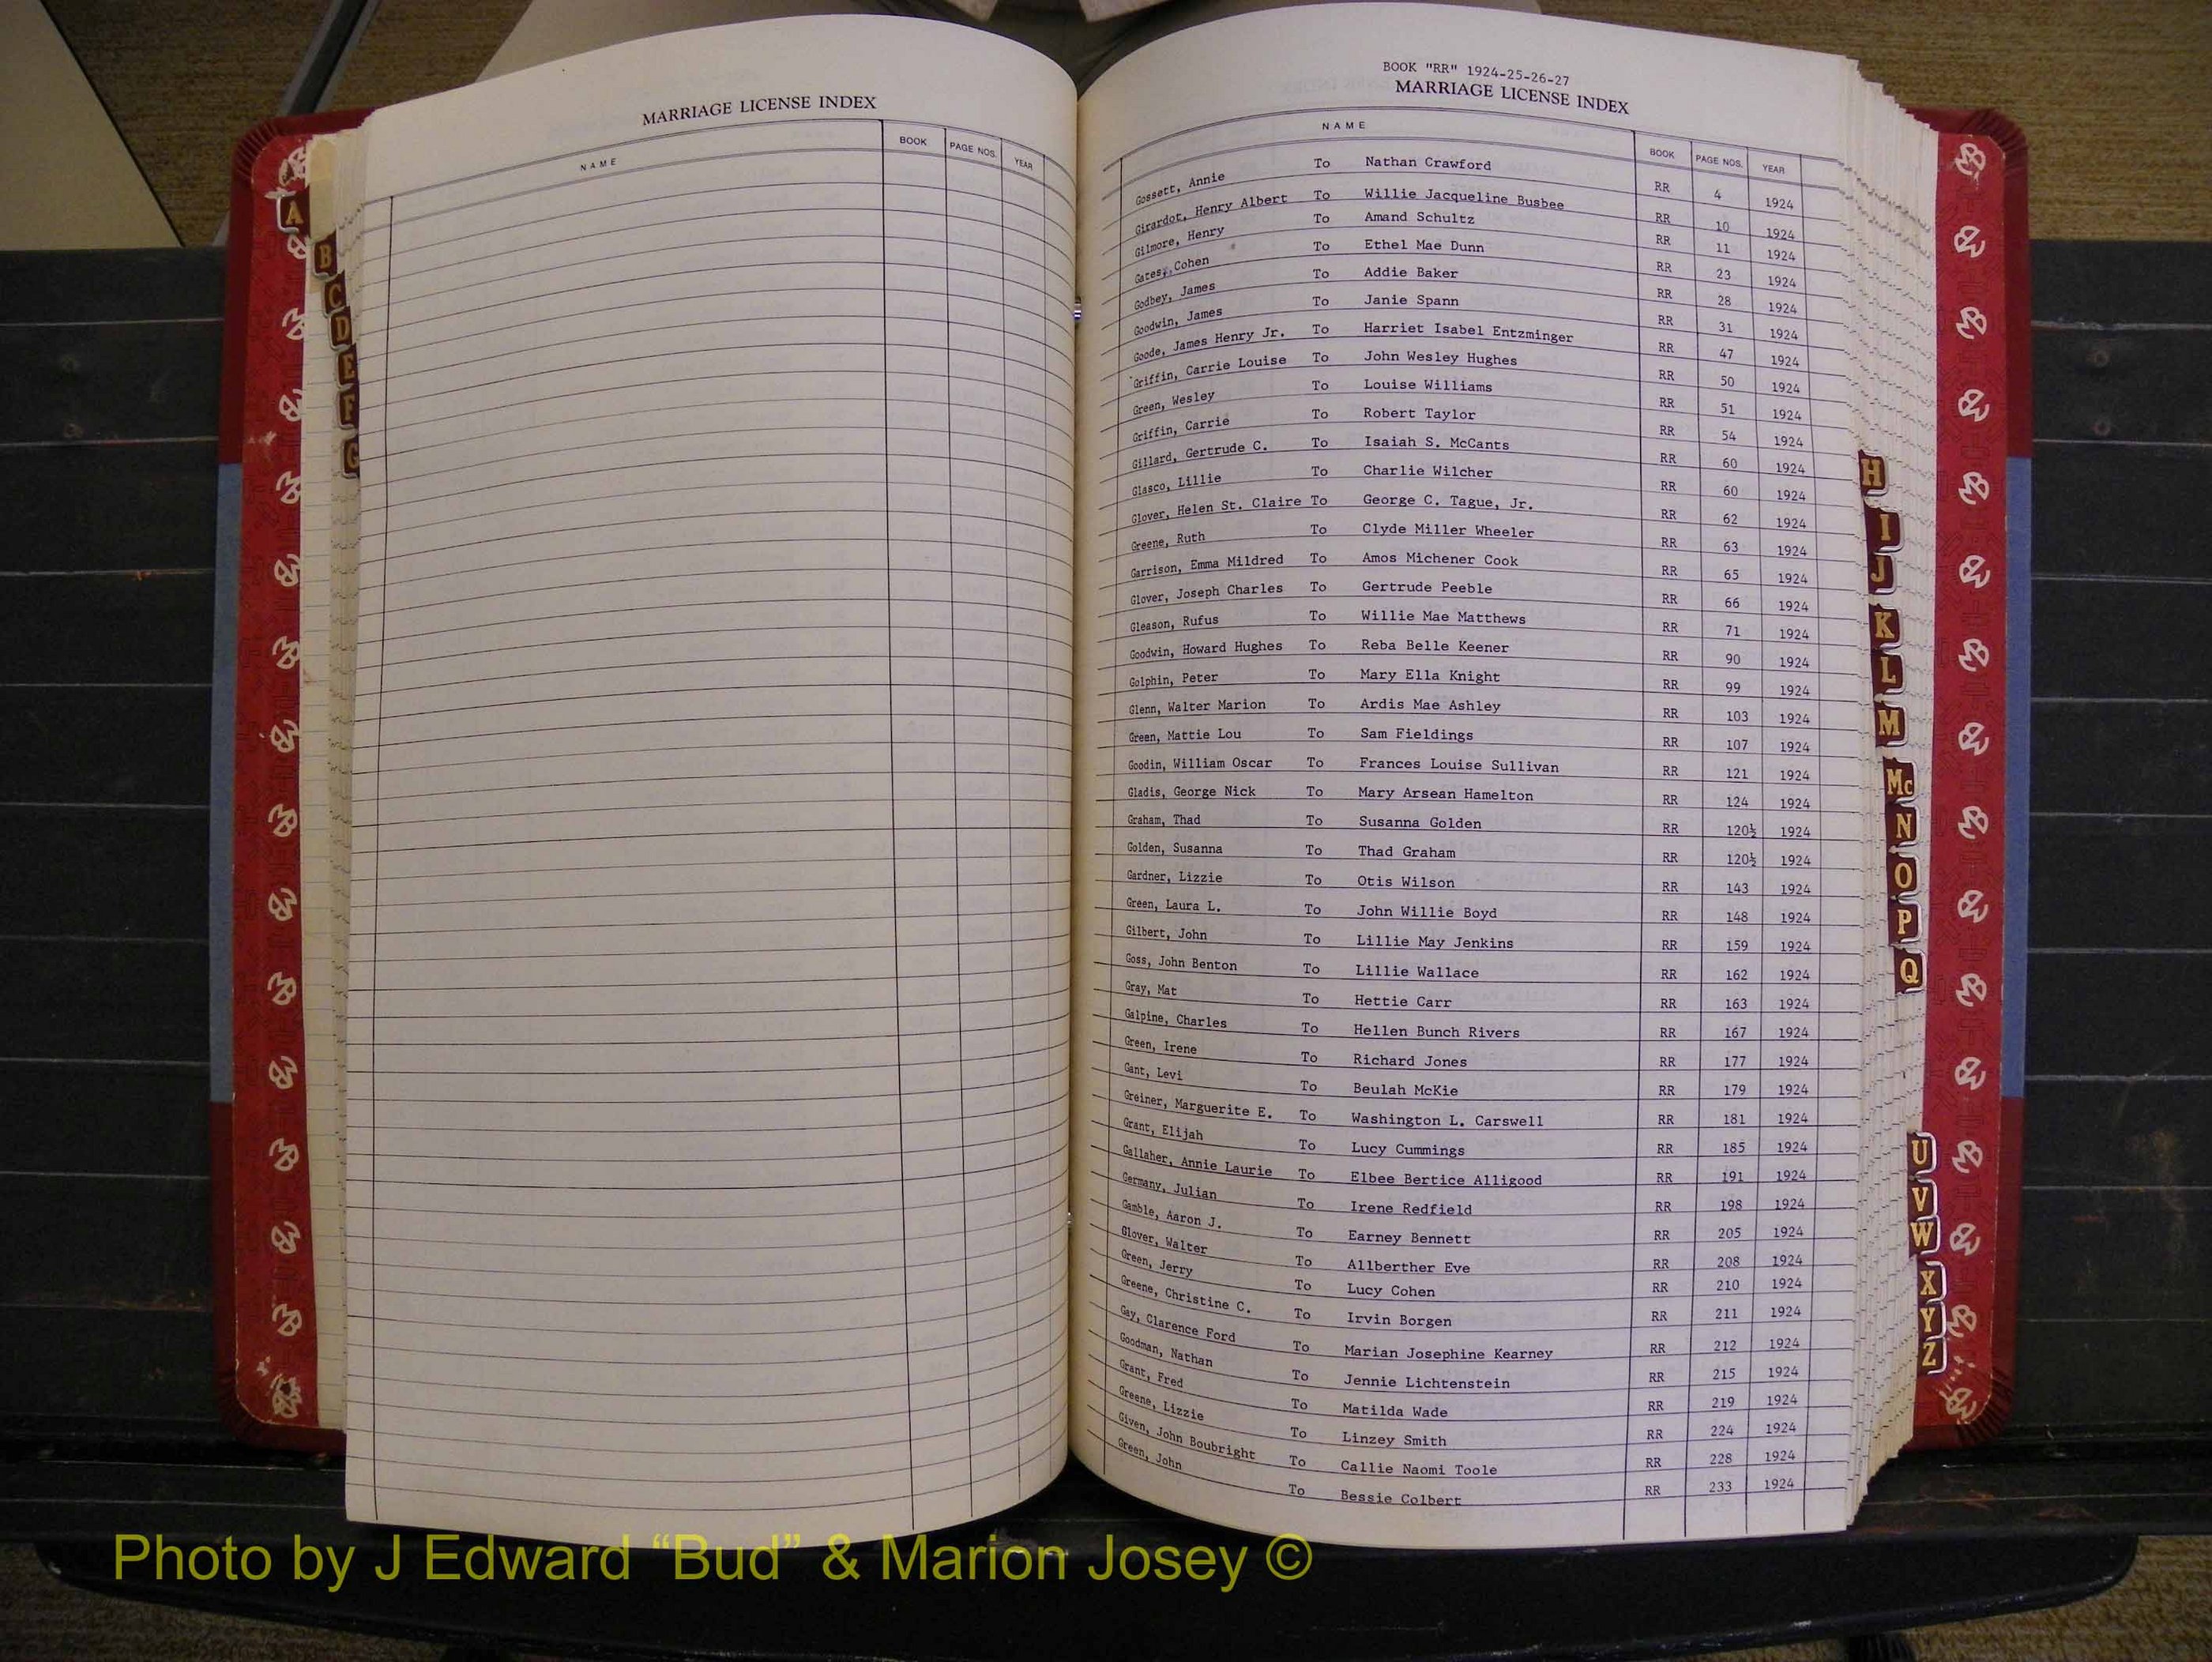 MARRIAGE LICENSE INDEX
NAME BOOK PAGE NOS. YEAR
A
B
C
D
E
F
G
BOOK "RR" 1924-25-26-27
MARRIAGE LICENSE INDEX
NAME BOOK PAGE NOS. YEAR
Gossett, Annie To Nathan Crawford RR 4 1924
Girardot, Henry Albert To Willie Jacqueline Busbee RR 10 1924
Gilmore, Henry To Amand Schultz RR 11 1924
Gates, Cohen To Ethel Mae Dunn RR 23 1924
Godbey, James To Addie Baker RR 28 1924
Goodwin, James To Janie Spann RR 31 1924
Goode, James Henry Jr. To Harriet Isabel Entzminger RR 47 1924
Griffin, Carrie Louise To John Wesley Hughes RR 50 1924
Green, Wesley To Louise Williams RR 51 1924
Griffin, Carrie To Robert Taylor RR 54 1924
Gillard, Gertrude C. To Isaiah S. McCants RR 60 1924
Glasco, Lillie To Charlie Wilcher RR 60 1924
Glover, Helen St. Claire To George C. Tague, Jr. RR 62 1924
Greene, Ruth To Clyde Miller Wheeler RR 63 1924
Garrison, Emma Mildred To Amos Michener Cook RR 65 1924
Glover, Joseph Charles To Gertrude Peeble RR 66 1924
Gleason, Rufus To Willie Mae Matthews RR 71 1924
Goodwin, Howard Hughes To Reba Belle Keener RR 90 1924
Golphin, Peter To Mary Ella Knight RR 99 1924
Glenn, Walter Marion To Ardis Mae Ashley RR 103 1924
Green, Mattie Lou To Sam Fieldings RR 107 1924
Goodin, William Oscar To Frances Louise Sullivan RR 121 1924
Gladis, George Nick To Mary Arsean Hamelton RR 124 1924
Graham, Thad To Susanna Golden RR 120½ 1924
Golden, Susanna To Thad Graham RR 120½ 1924
Gardner, Lizzie To Otis Wilson RR 143 1924
Green, Laura L. To John Willie Boyd RR 148 1924
Gilbert, John To Lillie May Jenkins RR 159 1924
Goss, John Benton To Lillie Wallace RR 162 1924
Gray, Mat To Hettie Carr RR 163 1924
Galpine, Charles To Hellen Bunch Rivers RR 167 1924
Green, Irene To Richard Jones RR 177 1924
Gant, Levi To Beulah McKie RR 179 1924
Greiner, Marguerite E. To Washington L. Carswell RR 181 1924
Grant, Elijah To Lucy Cummings RR 185 1924
Gallaher, Annie Laurie To Elbee Bertice Alligood RR 191 1924
Germany, Julian To Irene Redfield RR 198 1924
Gamble, Aaron J. To Earney Bennett RR 205 1924
Glover, Walter To Allberther Eve RR 208 1924
Green, Jerry To Lucy Cohen RR 210 1924
Greene, Christine C. To Irvin Borgen RR 211 1924
Gay, Clarence Ford To Marian Josephine Kearney RR 212 1924
Goodman, Nathan To Jennie Lichtenstein RR 215 1924
Grant, Fred To Matilda Wade RR 219 1924
Greene, Lizzie To Linzey Smith RR 224 1924
Given, John Boubright To Callie Naomi Toole RR 228 1924
Green, John To Bessie Colbert RR 233 1924
H
I
J
K
L
M
Mc
N
O
P
Q
U
V
W
X
Y
Z
Photo by J Edward “Bud” & Marion Josey ©